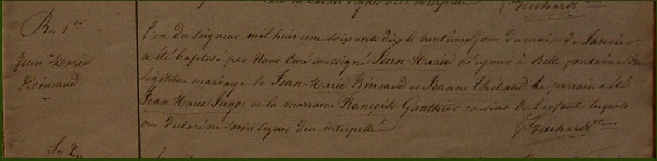 Bn 1er
Jean Marie
Rimaud
L'an du Seigneur mil huit cent soixante dix le huitième jour du mois de Janvier
a été baptisé par Nous Curé soussigné Jean Marie né ce jour à Belle fontaine du
légitime mariage de Jean Marie Rimaud et Jeanne Thébaud le parrain a été
Jean Marie et la marraine Françoise Gauthier cousins de l'enfant lesquels
ont déclaré ne savoir signer de ce interpellé
Bn 2e